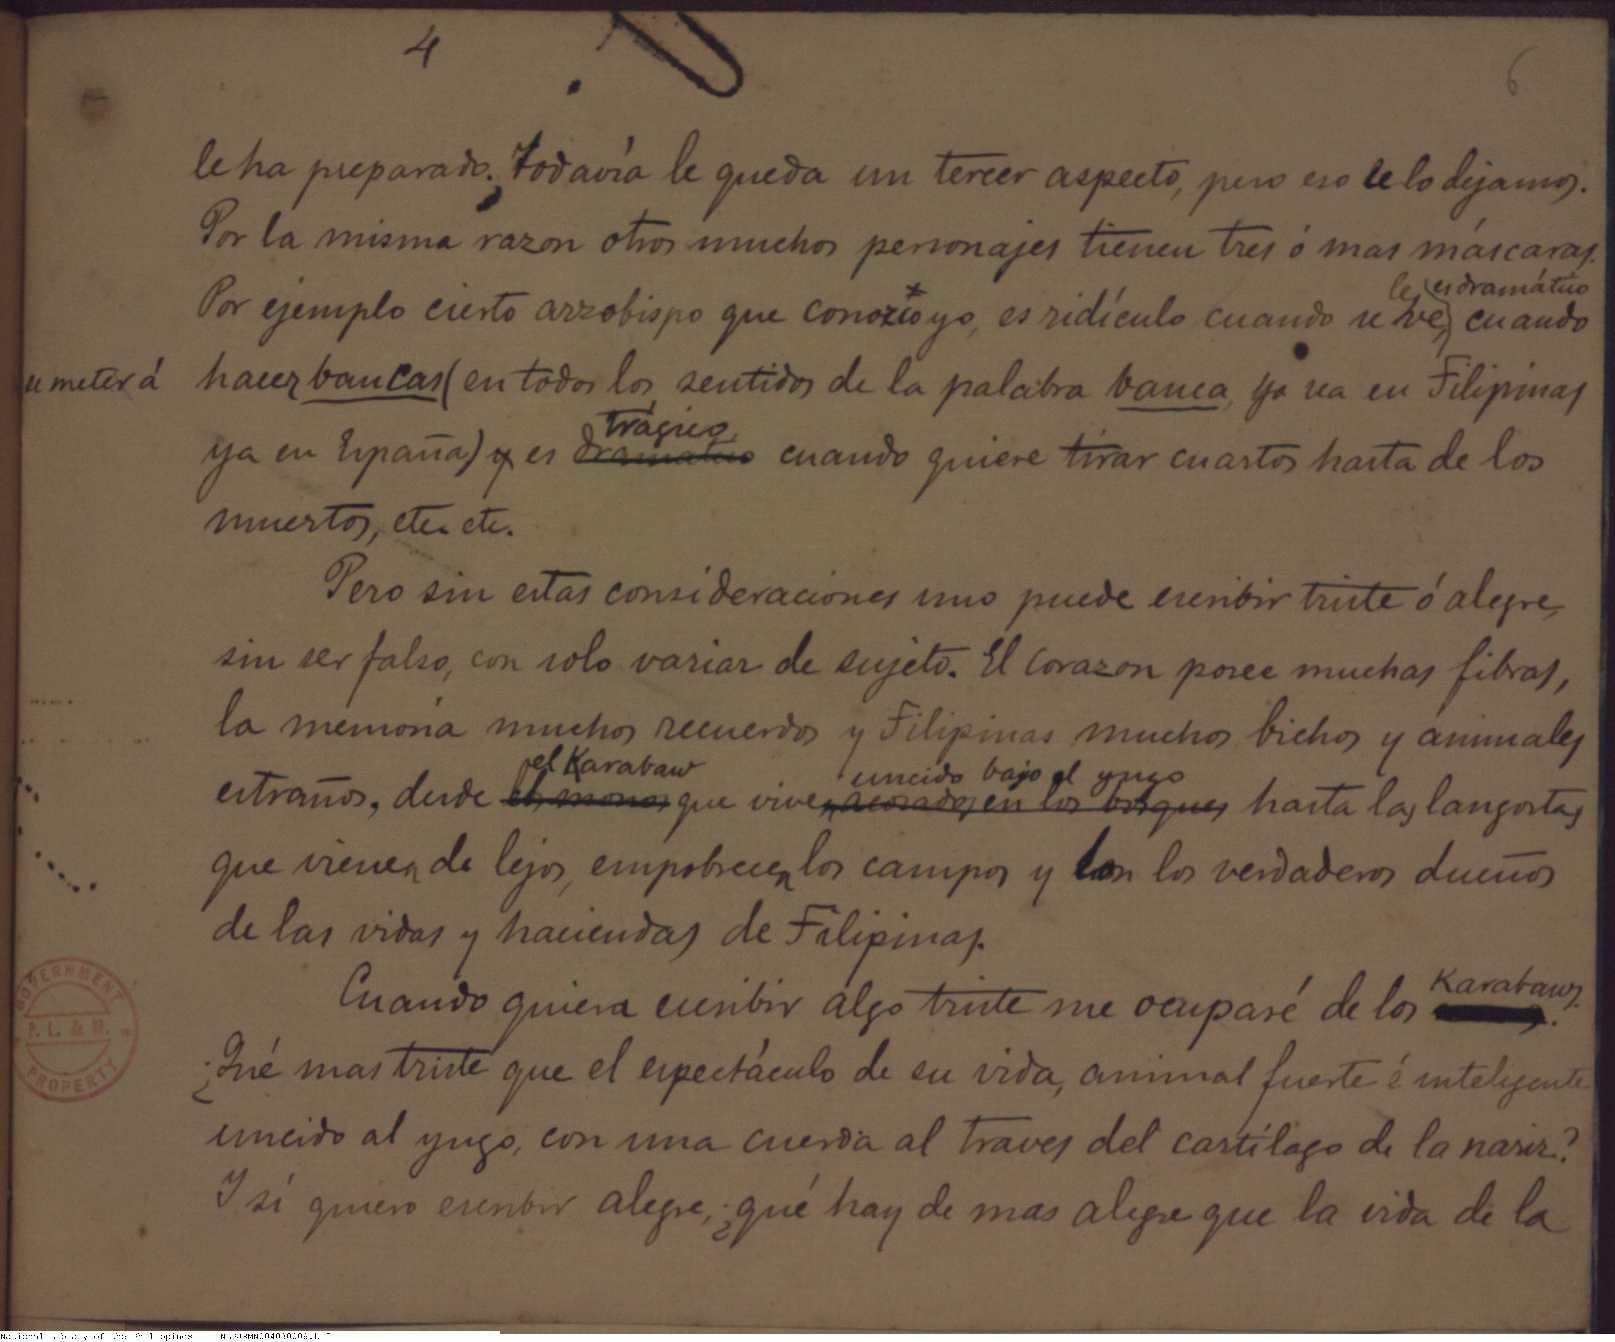 4
6
le ha preparado; Todavía le queda un tercer aspecto, pero eso se lo dejamos.
Por la misma razon otros muchos personajes tienen tres ó mas máscaras.
le es dramático
Por ejemplo cierto arzobispo que conozco yo, es ridículo cuando se ve, cuando
se meter á hacer bancas (en todos los sentidos de la palabra banca, ya sea en Filipinas
trágico
ya en España) y es dramatico cuando quiere tirar cuartos hasta de los
muertos, etc. etc.
Pero sin estas consideraciones uno puede escribir triste ó alegre,
sin ser falso, con solo variar de sujeto. El corazon posee muchas fibras,
la memoria muchos recuerdos y Filipinas muchos bichos y animales
el Karabaw uncido bajo el yugo
estraños, desde los monos que viven acosados en los bosques hasta las langostas
que vienen de lejos, empobrecen los campos y son los verdaderos dueños
de las vidas y haciendas de Filipinas.
Karabaws.
Cuando quiera escribir algo triste me ocuparé de los
¿Qué mas triste que el espectáculo de su vida, animal fuerte é inteligente
uncido al yugo, con una cuerda al traves del cartílago de la nariz?
Y si quiero escribir alegre, ¿qué hay de mas alegre que la vida de la
GOVERNMENT
P. L. & M.
PROPERTY
National Library of the Philippines